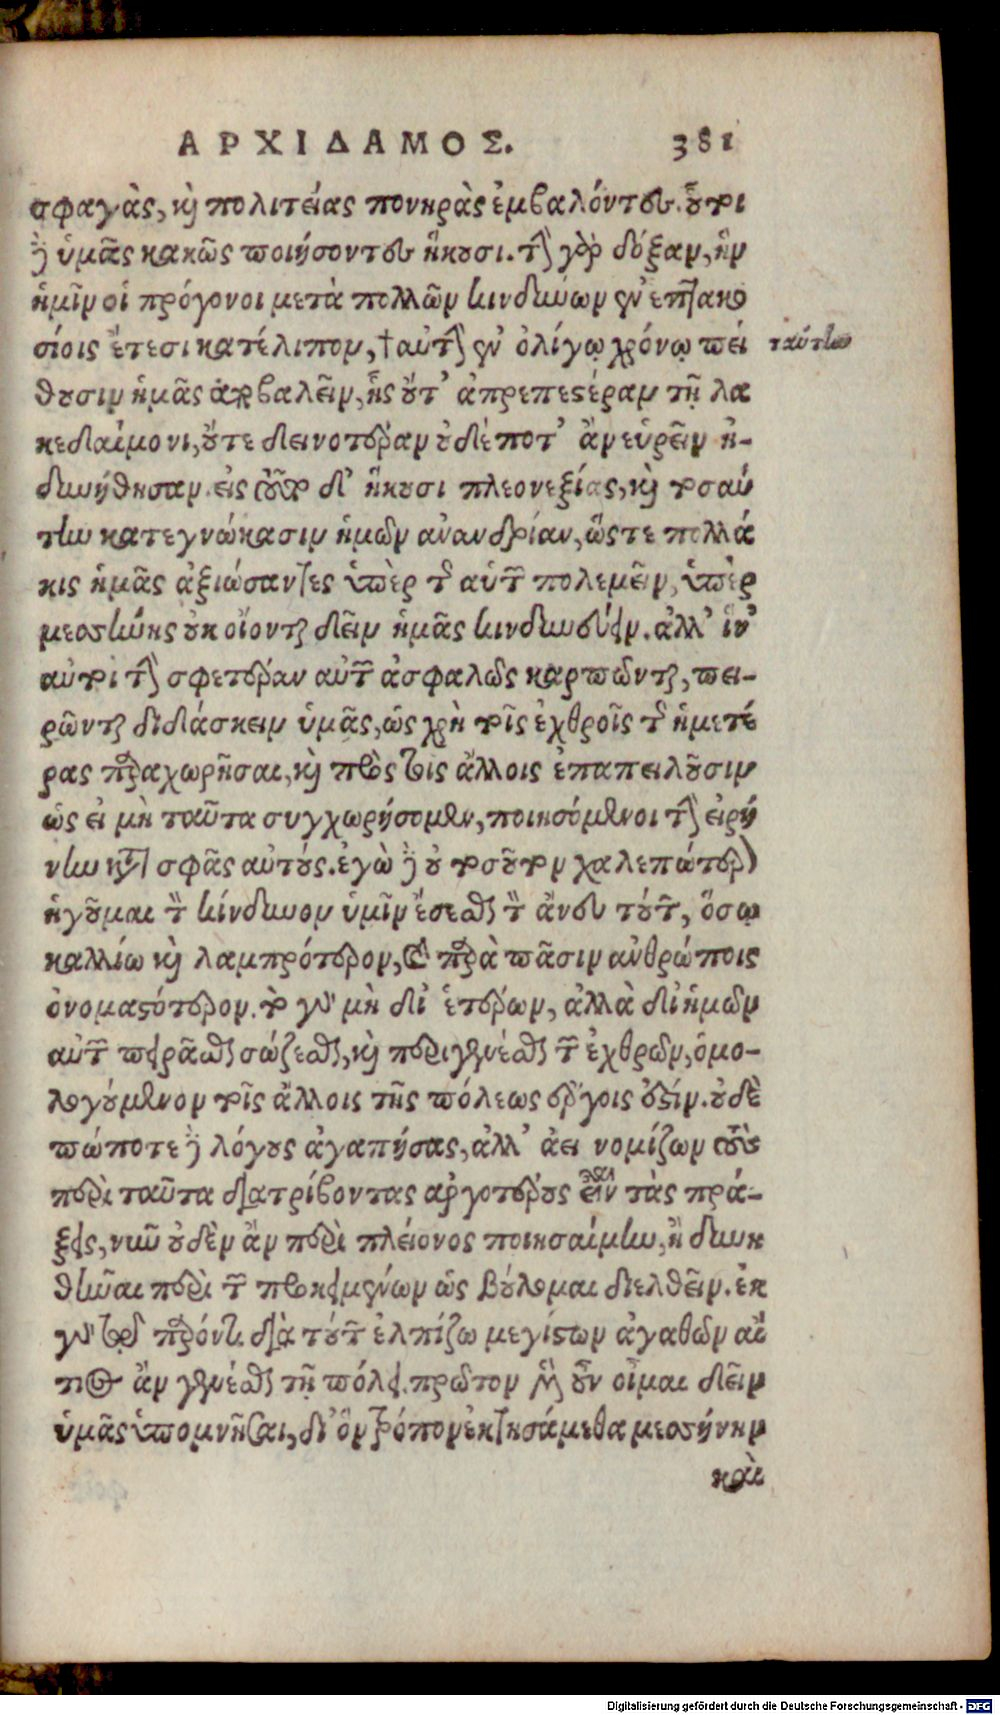 ΑΡΧΙΔΑΜΟΣ. 381
σφαγὰς, καὶ πολιτείας πονηρὰς ἐμβαλόντες. οὗτοι
δὲ ὑμᾶς κακῶς ποιήσοντες ἥκουσι. τὴν γὰρ δόξαν, ἣν
ἡμῖν οἱ πρόγονοι μετὰ πολλῶν κινδύνων ἐν ἑπτακο
σίοις ἔτεσι κατέλιπον, †αὐτὴν ἐν ὀλίγῳ χρόνῳ πεί
θουσιν ἡμᾶς ἀποβαλεῖν, ἧς οὔτ' ἀπρεπεστέραν τῇ λα
κεδαίμονι, οὔτε δεινοτέραν οὐδέποτ' ἂν εὑρεῖν ἠ-
δυνήθησαν. εἰς τοῦτο δ' ἥκουσι πλεονεξίας, καὶ τοσαύ
την κατεγνώκασιν ἡμῶν ἀνανδρίαν, ὥστε πολλά
κις ἡμᾶς ἀξιώσαντες ὑπὲρ τῆς αὑτῶν πολεμεῖν, ὑπὲρ
μεσσήνης οὐκ οἴονται δεῖν ἡμᾶς κινδυνεύειν. ἀλλ' ἵν'
αὐτοὶ τὴν σφετέραν αὐτῶν ἀσφαλῶς καρπῶνται, πει-
ρῶνται διδάσκειν ὑμᾶς, ὡς χρὴ τοῖς ἐχθροῖς τῆς ἡμετέ
ρας παραχωρῆσαι, καὶ πρὸς τοῖς ἄλλοις ἐπαπειλοῦσιν
ὡς εἰ μὴ ταῦτα συγχωρήσομεν, ποιησόμενοι τὴν εἰρή
νην κατὰ σφᾶς αὐτούς. ἐγὼ δὲ οὐ τοσοῦτον χαλεπώτερον
ἡγοῦμαι τὸν κίνδυνον ὑμῖν ἔσεσθαι τὸν ἄνευ τούτων, ὅσῳ
καλλίω καὶ λαμπρότερον, καὶ παρὰ πᾶσιν ἀνθρώποις
ὀνομαστότερον. τὸ γὰρ μὴ δι' ἑτέρων, ἀλλὰ δι' ἡμῶν
αὐτῶν πειρᾶσθαι σώζεσθαι, καὶ περιγενέσθαι τῶν ἐχθρῶν, ὁμο-
λογούμενον τοῖς ἄλλοις τῆς πόλεως ἔργοις ἐστίν. οὐδὲ
πώποτε δὲ λόγους ἀγαπήσας, ἀλλ' ἀεὶ νομίζων τοὺς
περὶ ταῦτα διατρίβοντας ἀργοτέρους εἶναι τὰς πρά-
ξεις, νῦν οὐδὲν ἂν περὶ πλείονος ποιησαίμην, ἢ δυνη
θῆναι περὶ τῶν προκειμένων ὡς βούλομαι διελθεῖν. ἐκ
γὰρ τοῦ παρόντος διὰ τούτων ἐλπίζω μεγίστων ἀγαθῶν αἴ
τιος ἂν γενέσθαι τῇ πόλει. πρῶτον μὲν οὖν οἶμαι δεῖν
ὑμᾶς ὑπομνῆσαι, δι' ὃν τρόπον ἐκτησάμεθα μεσσήνην
καὶ
ταύτην
Digitalisierung gefördert durch die Deutsche Forschungsgemeinschaft - DFG